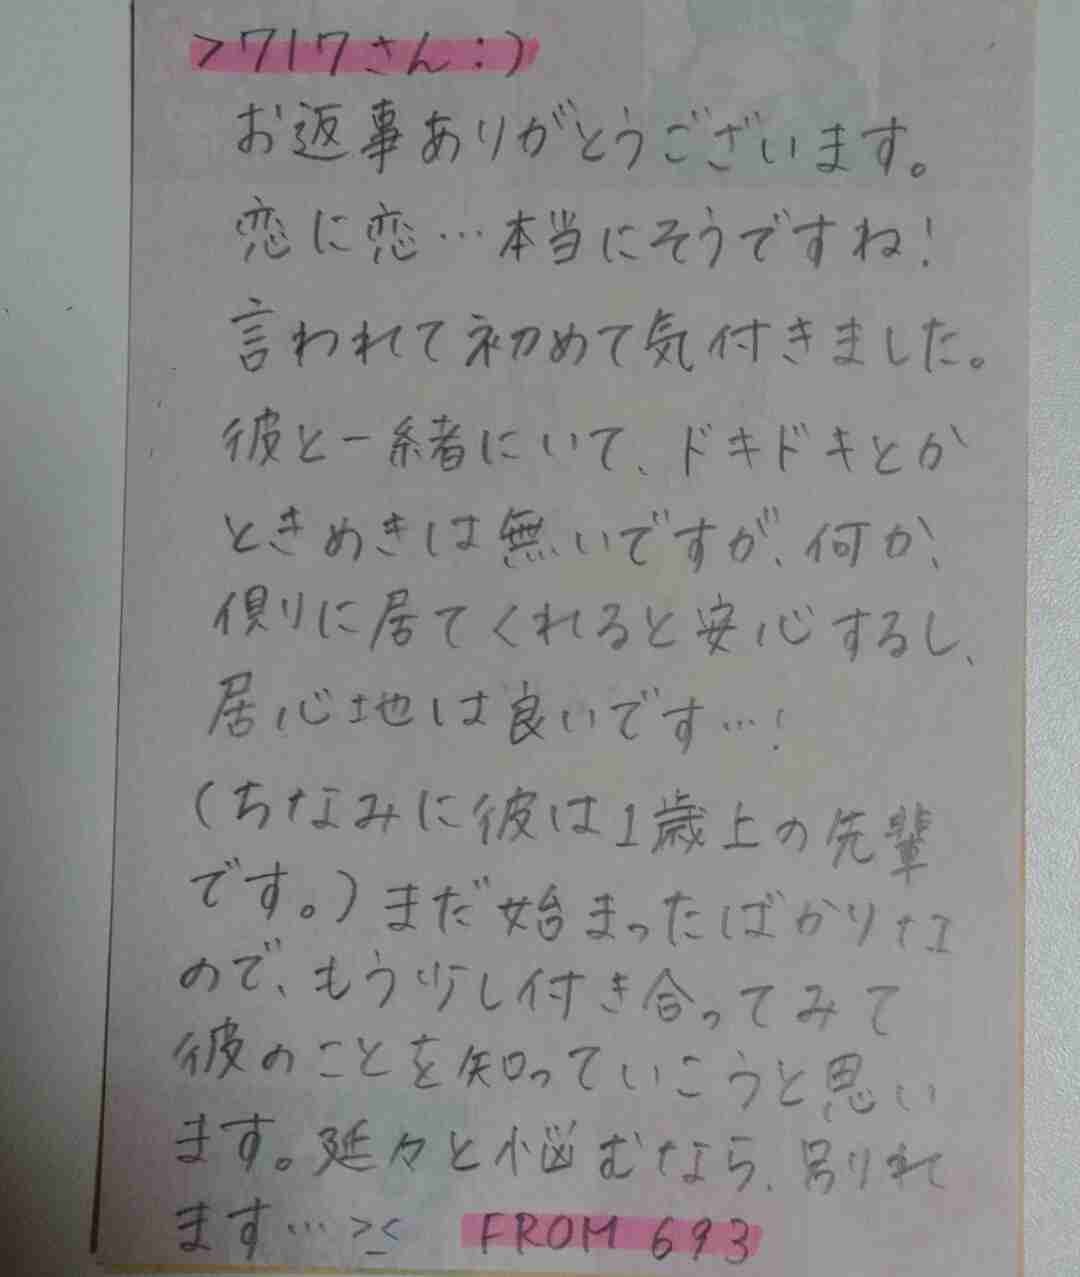 >717さん:)
お返事ありがとうございます。
恋に恋…本当にそうですね!
言われて初めて気付きました。
彼と一緒にいて、ドキドキとか
ときめきは無いですが、何か、
側りに居てくれると安心するし、
居心地は良いです…!
(ちなみに彼は1歳上の先輩
です。)まだ始まったばかりな
ので、もう少し付き合ってみて
彼のことを知っていこうと思い
ます。延々と悩むなら、別れて
ます…>_<
FROM 693